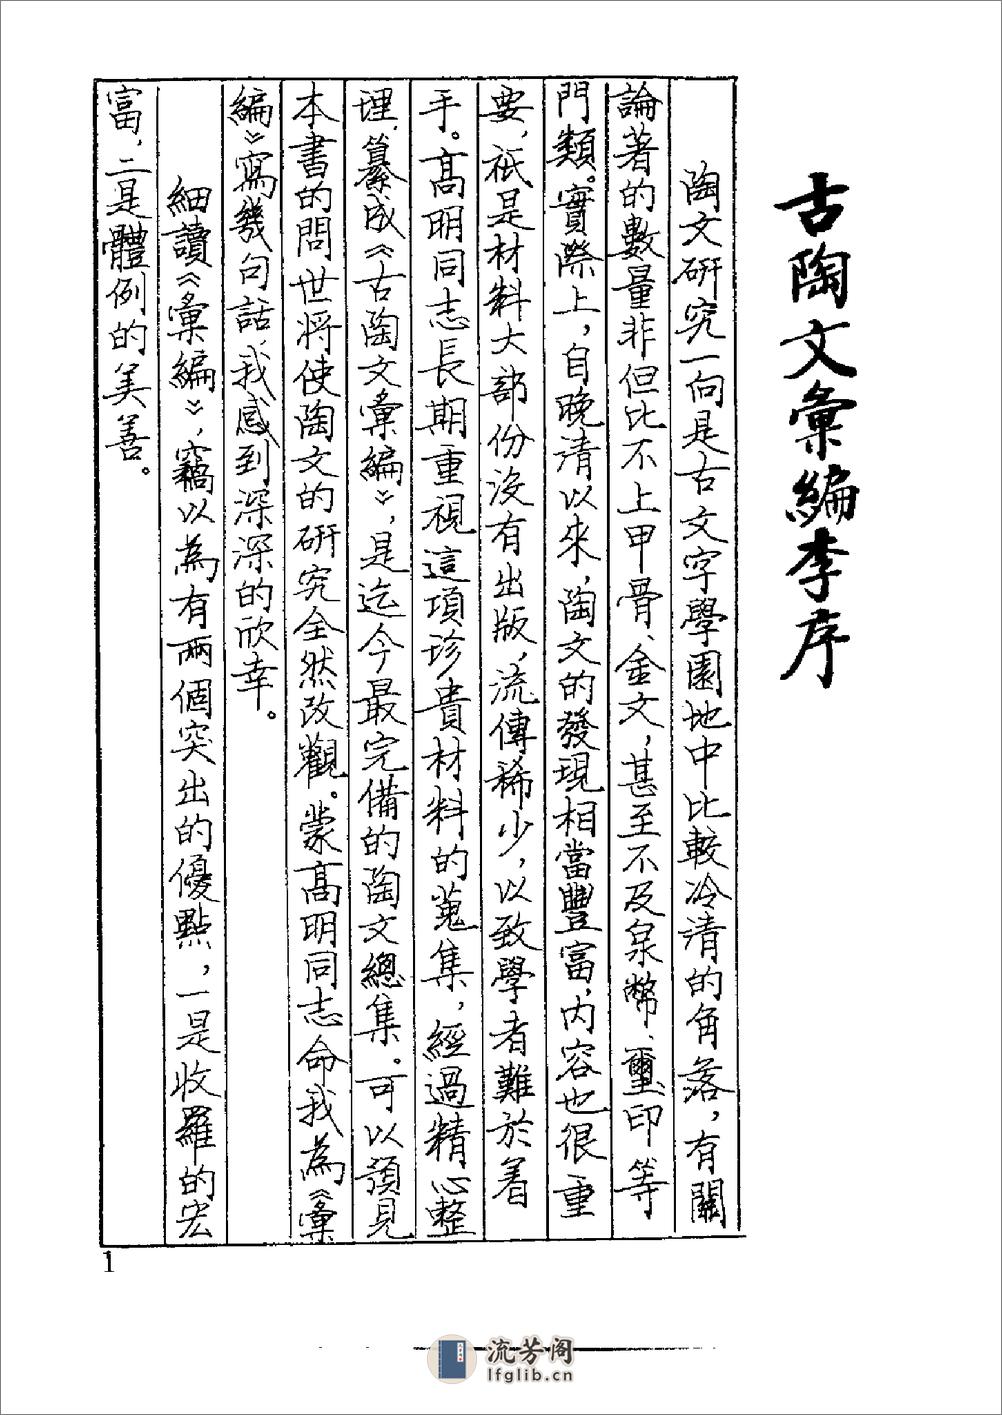 古陶文彙編李序
陶文研究一向是古文字學園地中比較冷清的角落，有關
論著的數量非但比不上甲骨、金文，甚至不及泉幣、璽印等
門類。實際上，自晚清以來，陶文的發現相當豐富，内容也很重
要，祇是材料大部份沒有出版，流傳稀少，以致學者難於着
手。高明同志長期重視這項珍貴材料的蒐集，經過精心整
理，纂成《古陶文彙編》，是迄今最完備的陶文總集。可以預見
本書的問世將使陶文的研究全然改觀。蒙高明同志命我為《彙
編》寫幾句話，我感到深深的欣幸。
細讀《彙編》，竊以為有兩個突出的優點，一是收羅的宏
富，二是體例的美善。
1
流芳阁
lfglib.cn